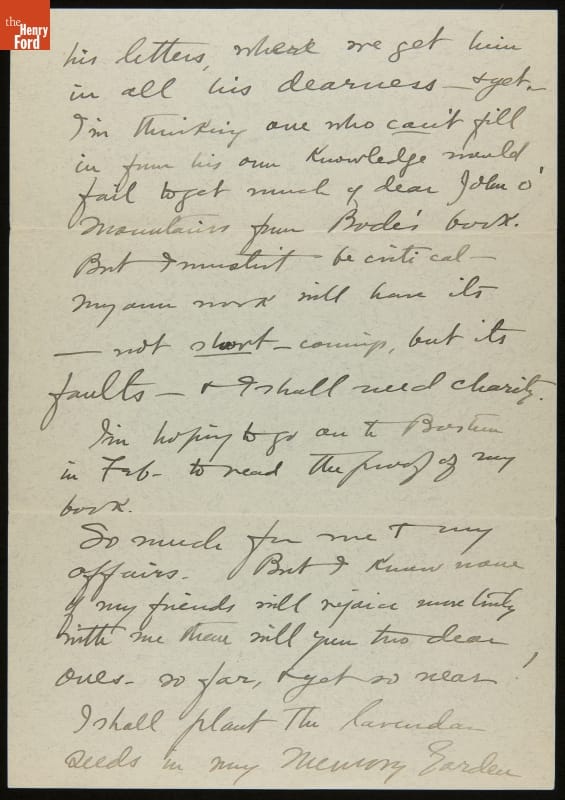 the
Henry
Ford
his letters, where we get him
in all his dearness — & yet —
I'm thinking one who can't fill
in from his own knowledge would
fail to get much of dear John o'
Mountains from Bade's book.
But I mustn't be critical —
My own work will have its
— not short-comings, but its
faults — & I shall need charity.
I'm hoping to go on to Boston
in Feb. to read the proof of my
book.
So much for me & my
affairs. But I know none
of my friends will rejoice more truly
with me than will you two dear
ones — so far, & yet so near!
I shall plant the lavendar
seeds in my Memory Garden